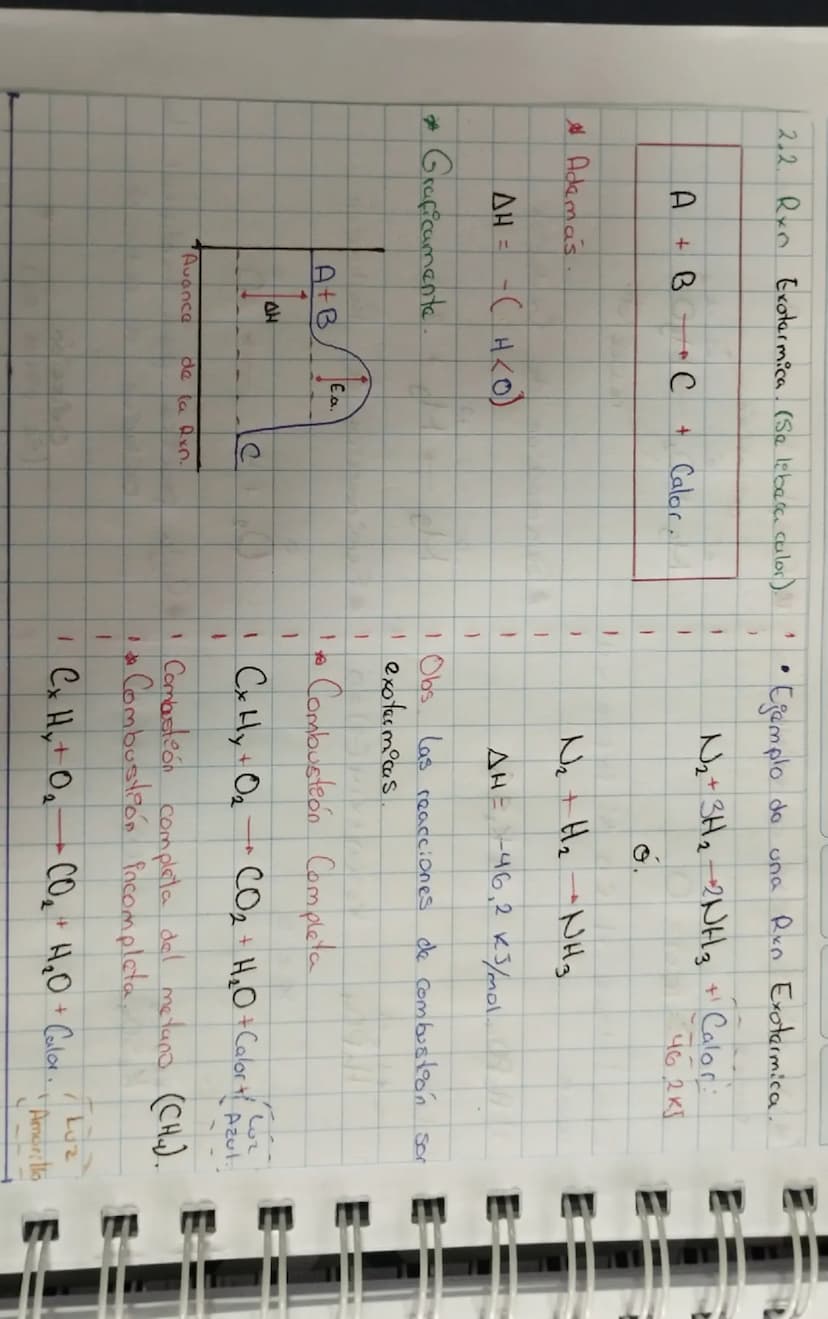 2.2. Rxn Exotermica. (Se libera calor).
A + B → C + Calor.
* Además.
ΔH = -( H<0)
* Graficamente.
A+B
Ea.
ΔH
C
Avance de la Rxn.
• Ejemplo de una Rxn Exotermica.
N₂+3H₂→2NH₃ + Calor.
46,2 KJ
ó.
N₂ + H₂ → NH₃
ΔH = -46,2 KJ/mol.
Obs las reacciones de combustión son
exotermicas.
* Combustión Completa
CxHy+O₂ → CO₂ + H₂O+Calor+ Luz
Azul.
Combustión completa del metano (CH₄).
* Combustión incompleta.
CxHy+O₂ → CO₂ + H₂O + Calor. Luz
Amarilla